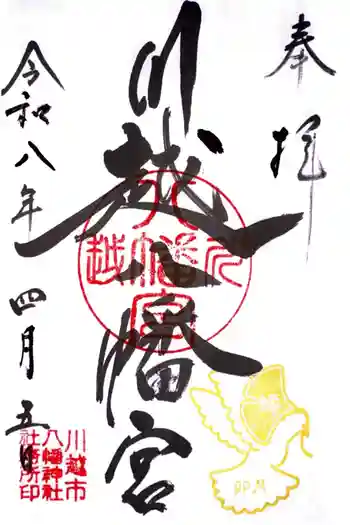 奉拝
川越八幡宮
令和八年四月五日
川越八幡宮
川越市
八幡神社
社務所印